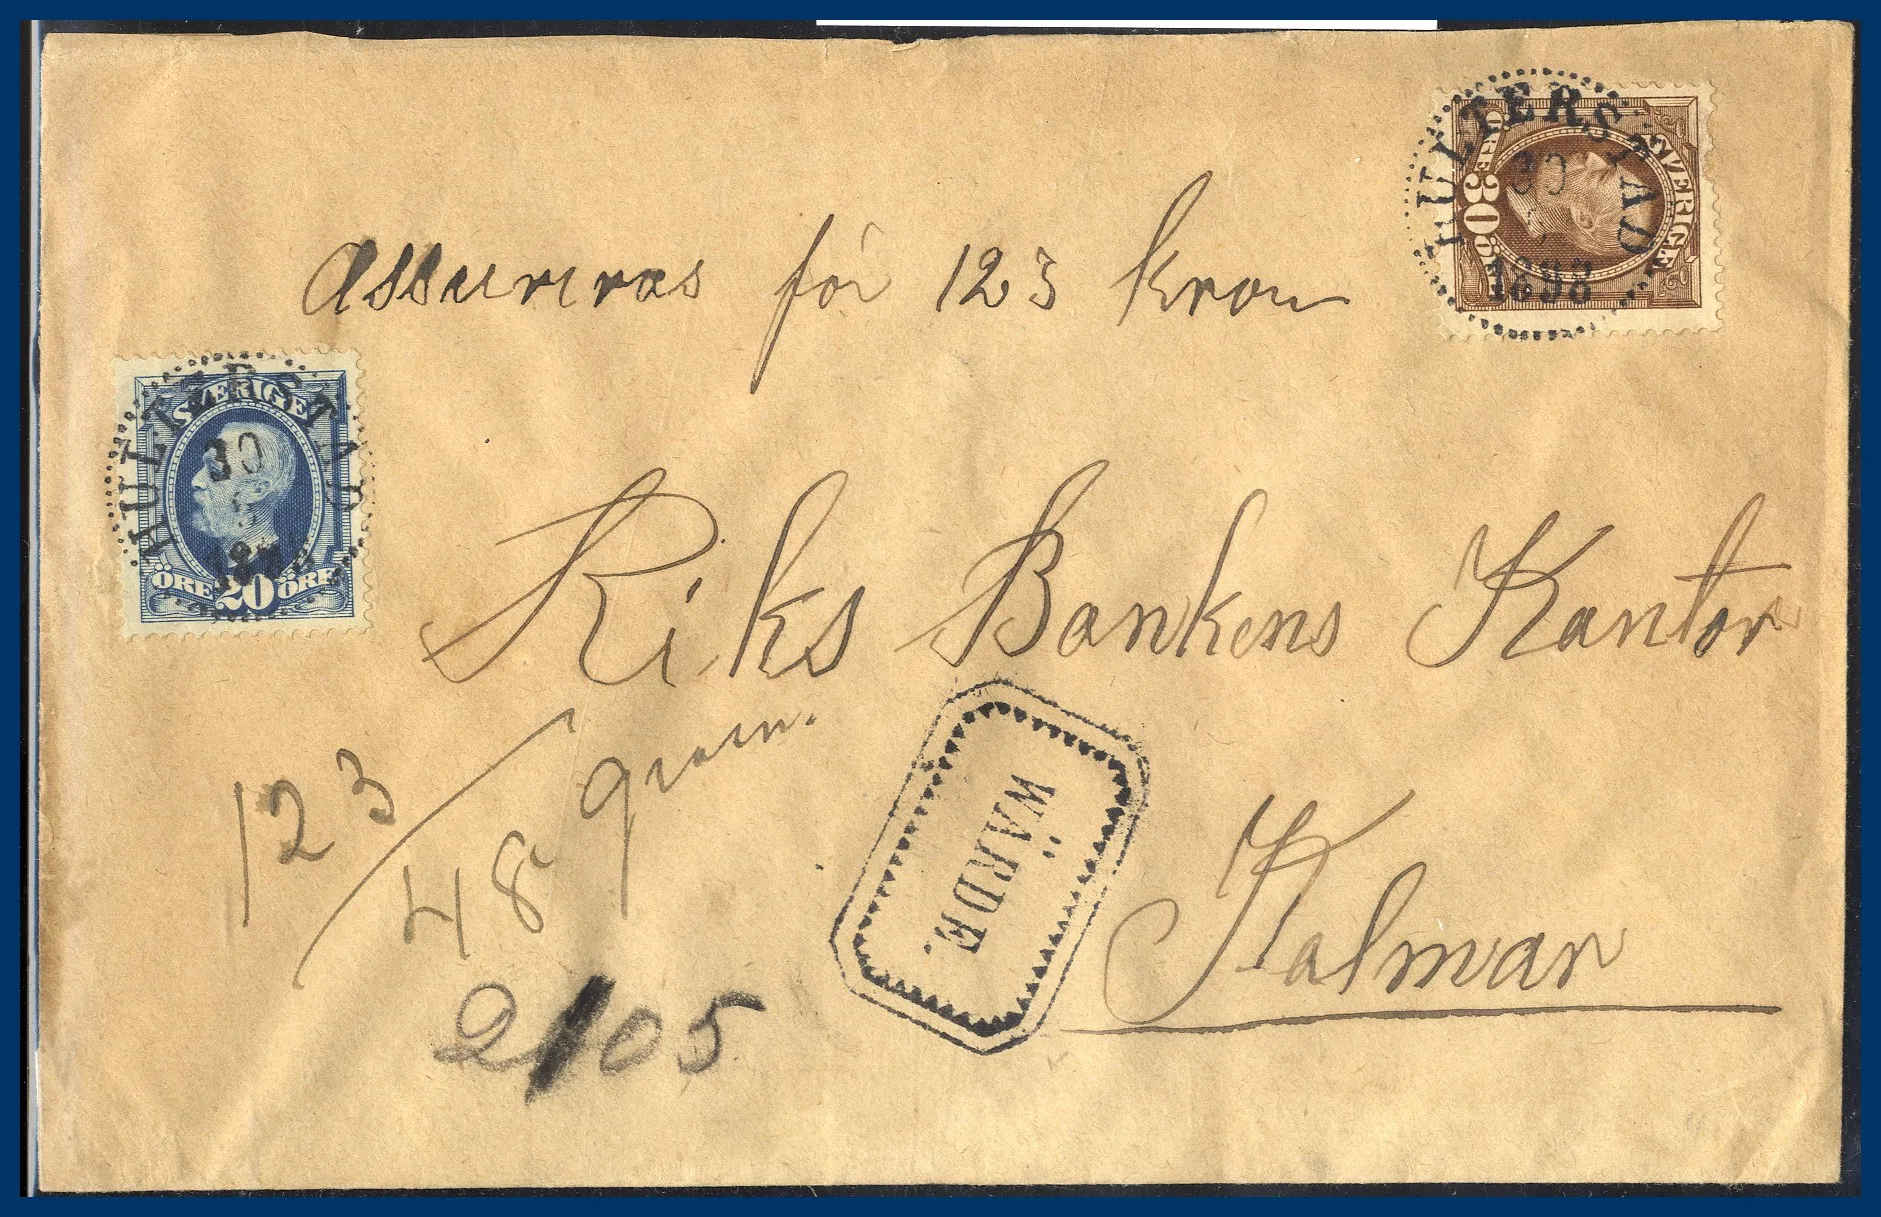 HULTERSTAD
30
1898
SVERIGE
30 ÖRE
Assureras för 123 kron
HULTERSTAD
30
SVERIGE
ÖRE 20 ÖRE
Riks Bankens Kantor
123 / 48 gram.
WÄRDE.
Kalmar
2105